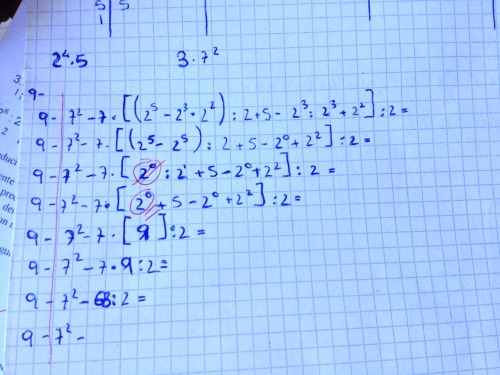 5 | 5
1 |
2⁴·5    3·7²
9-
- 7² - 7·[(2⁵ - 2³·2²) : 2 + 5 - 2³ : 2³ + 2²] : 2 =
9 - 7² - 7·[(2⁵ - 2⁵) : 2 + 5 - 2⁰ + 2²] : 2 =
9 - 7² - 7·[2⁰ : 2¹ + 5 - 2⁰ + 2²] : 2 =
9 - 7² - 7·[2⁰ + 5 - 2⁰ + 2²] : 2 =
9 - 7² - 7·[9] : 2 =
9 - 7² - 7·9 : 2 =
9 - 7² - 63 : 2 =
9 - 7² -